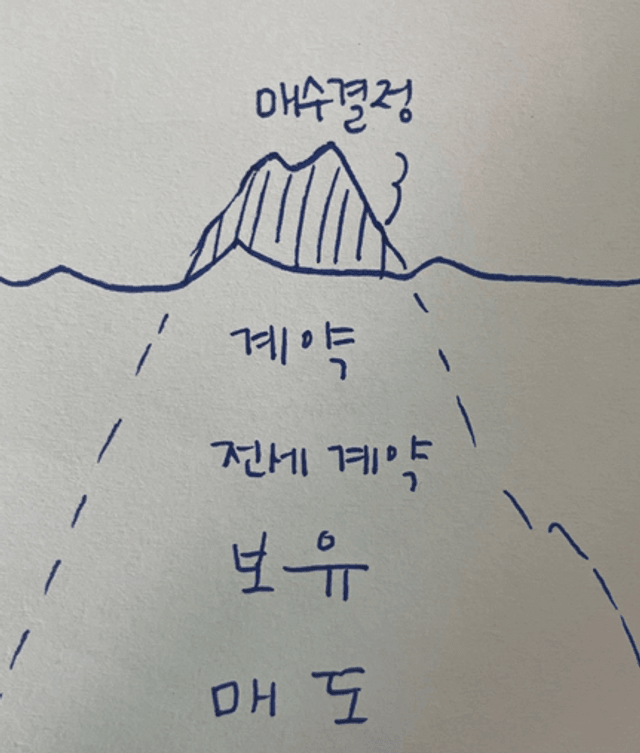 매수결정
계약
전세 계약
보유
매도